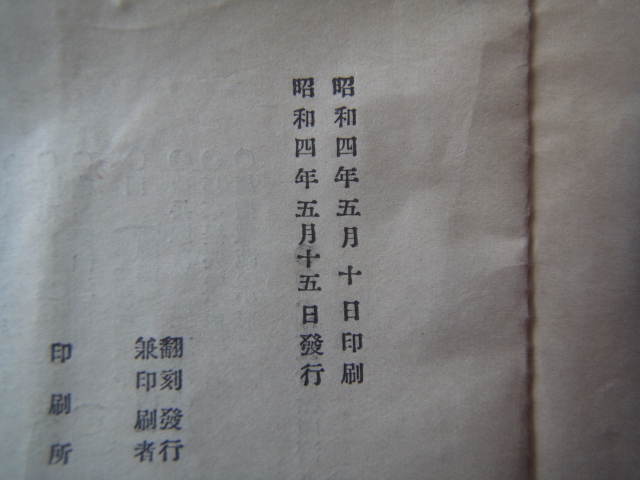 昭和四年五月十日印刷
昭和四年五月十五日發行
翻刻發行
兼印刷者
印刷所